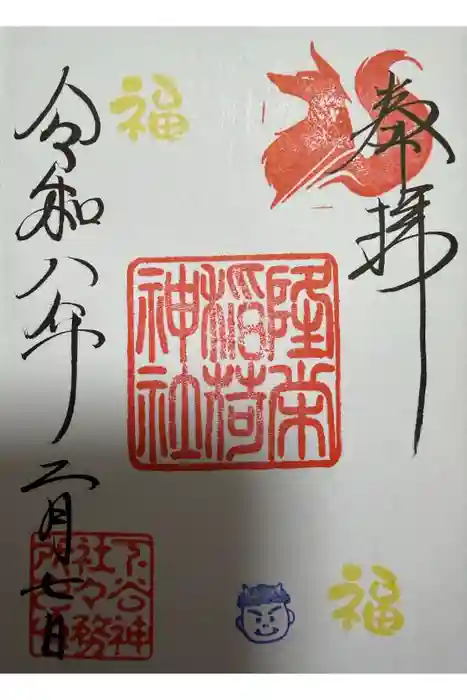 奉拝
福
隆栄
稲荷
神社
令和八年二月七日
下谷神
社々務
福